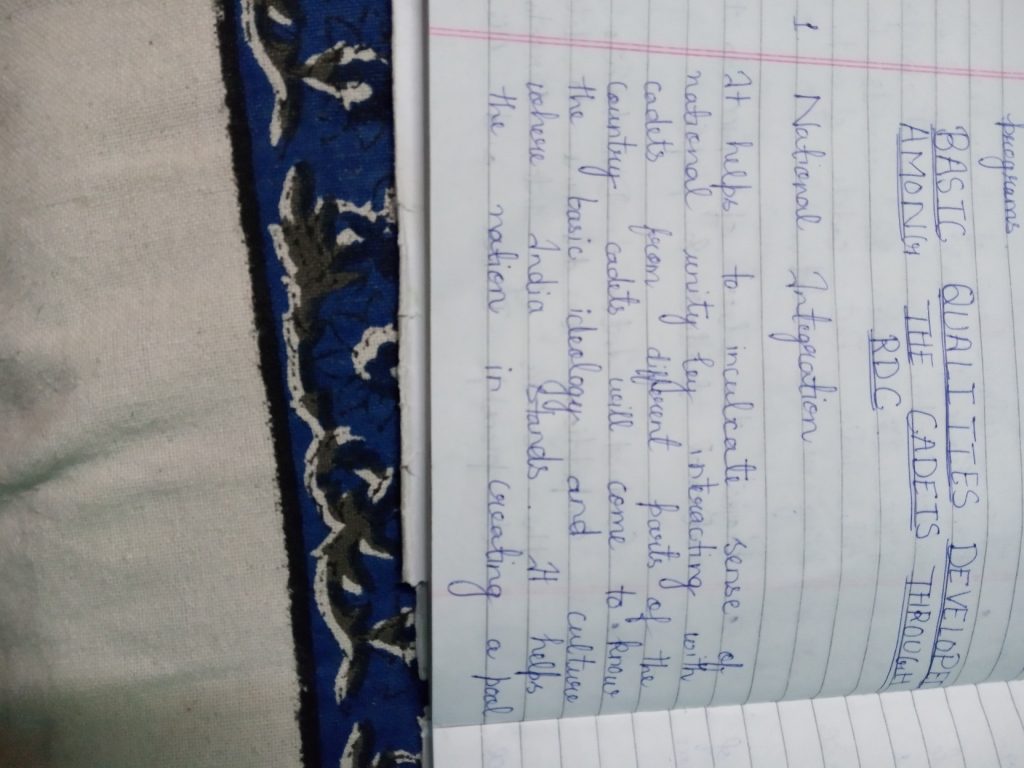 programs
BASIC QUALITIES DEVELOPE
AMONG THE CADETS THROUGH
RDC
1 National Integration
It helps to inculcate sense of
national unity by interacting with
cadets from different parts of the
country cadets will come to know
the basic ideology and culture
where India stands. It helps
the nation in creating a pool